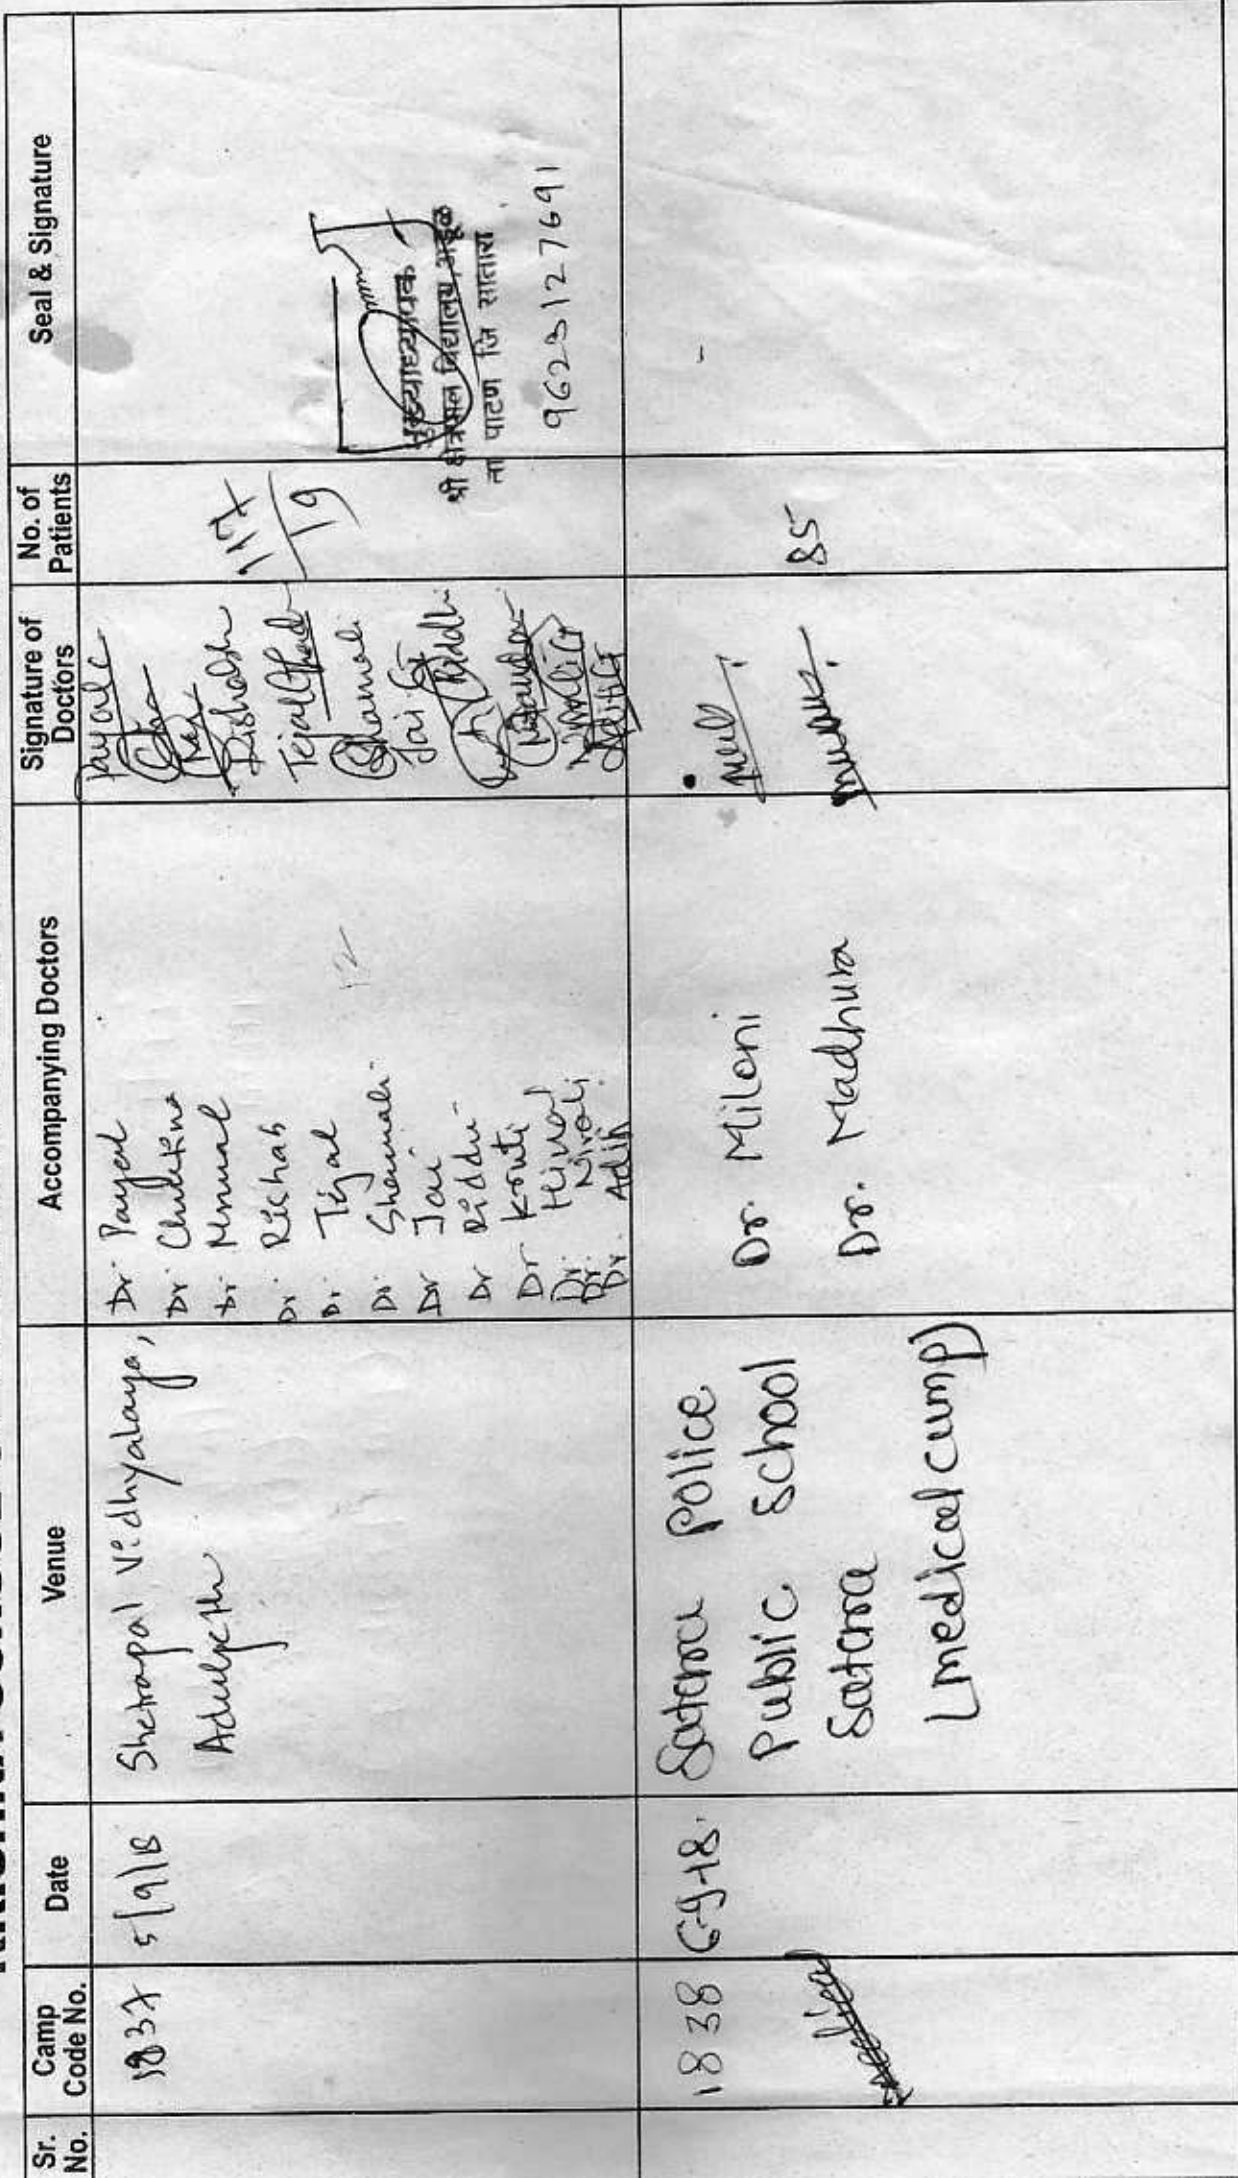 Sr. No.
Camp Code No.
Date
Venue
Accompanying Doctors
Signature of Doctors
No. of Patients
Seal & Signature
1837
5/9/18
Shetrapal Vidhyalaya,
Dr. Payal
Dr.
Dr. Mrunal
Dr. Rishab
Dr. Tejal
Dr. Shamali
Dr Jai
Dr Riddhi
Dr Kruti
Dr. Hinal
Dr. Nirali
Dr. Aditi
12
Payal C
Rishabh
Tejal
Shamali
Jai G
Riddhi
Nirali G
Aditi G
117
19
मुख्याध्यापक
श्री क्षेत्रपाल विद्यालय अडूळ
ता पाटण जि सातारा
9623127691
1838
6-9-18.
Satara Police
Public School
Satara
(medical cump)
Dr. Miloni
Dr. Madhura
85
-